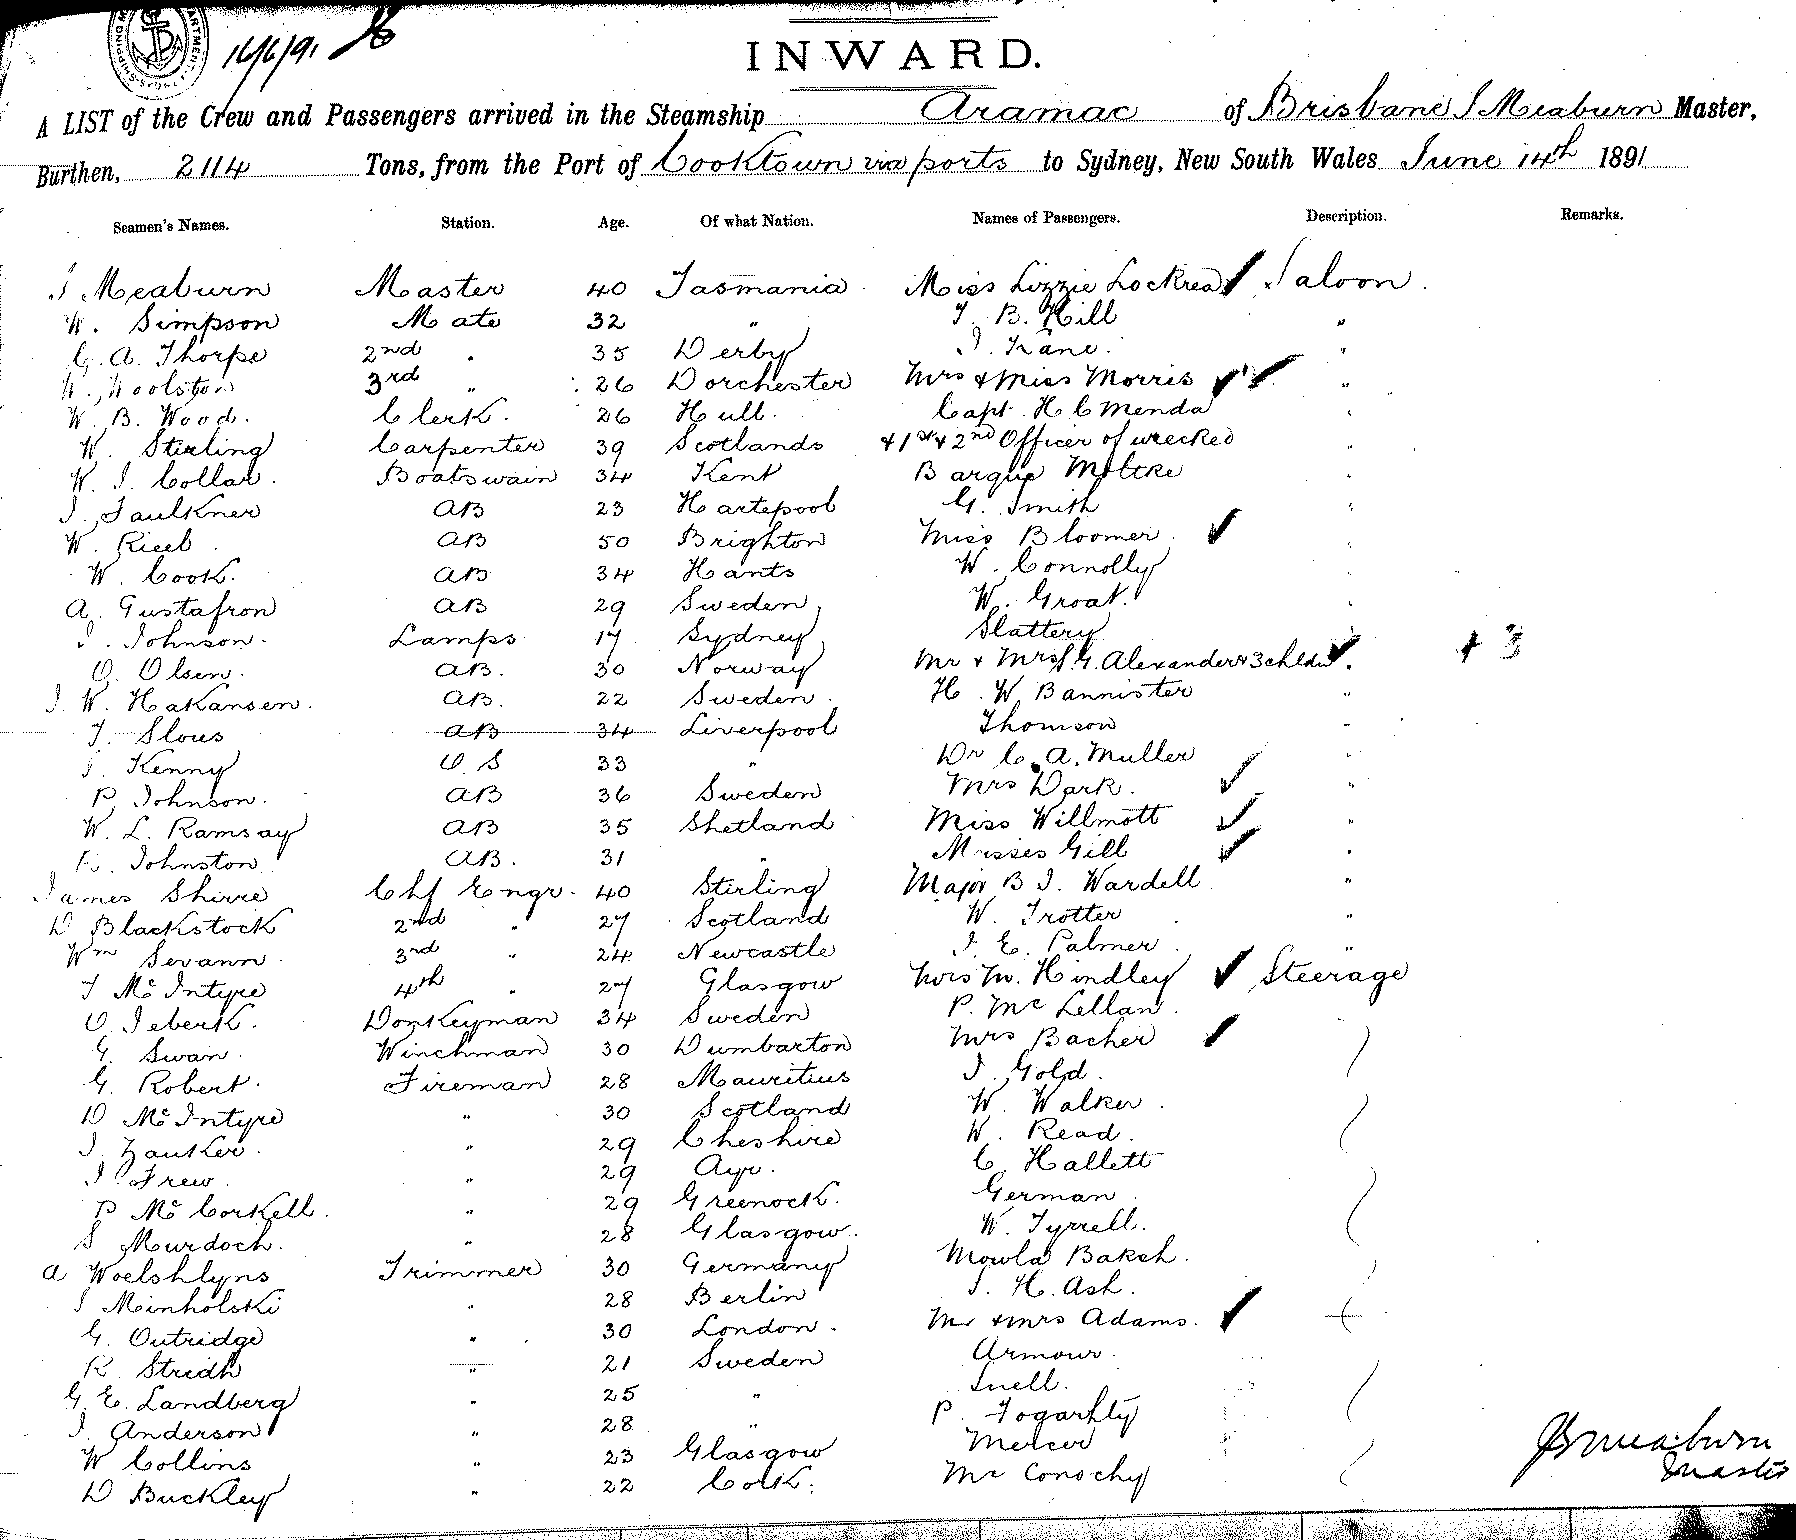 16/6/91
INWARD.
A LIST of the Crew and Passengers arrived in the Steamship Aramac of Brisbane J Meaburn Master,
Burthen, 2114 Tons, from the Port of Cooktown via ports to Sydney, New South Wales June 14th 1891
Seamen's Names. Station. Age. Of what Nation. Names of Passengers. Description. Remarks.
J Meaburn Master 40 Tasmania Miss Lizzie Lockrea Saloon.
W. Simpson Mate 32 " T. B. Hill "
G. A. Thorpe 2nd " 35 Derby J. Kane. "
W. Woolston 3rd " 26 Dorchester Mrs & Miss Morris "
W. B. Wood. Clerk. 26 Hull. Capt. H C Menda "
W. Stirling Carpenter 39 Scotlands & 1st & 2nd Officer of wrecked "
W. J. Collar. Boatswain 34 Kent Barque Moltke "
J. Faulkner AB 23 Hartepool G. Smith "
W. AB 50 Brighton Miss Bloomer. "
W. Cook. AB 34 Hants W. Connolly "
A. Gustafron AB 29 Sweden W. Groat. "
J. Johnson. Lamps 17 Sydney Slattery "
O. Olsen. AB. 30 Norway Mr & Mrs G. Alexander & 3 child + 3
J. W. Hakansen. AB. 22 Sweden H. W. Bannister "
T. Slous AB 34 Liverpool Thomson "
J. Kenny O. S 33 " Dr C. A. Muller "
P. Johnson. AB 36 Sweden Mrs Dark. "
W. L. Ramsay AB 35 Shetland Miss Willmott "
R. Johnston AB. 31 " Misses Gill "
James Shirre Chf Engr. 40 Stirling Major B J. Wardell "
D Blackstock 2nd " 27 Scotland W. Trotter "
Wm Sevann 3rd " 24 Newcastle J. E. Palmer "
T McIntyre 4th " 27 Glasgow Mrs M. Hindley Steerage
O. Seberk. Donkeyman 34 Sweden P. McLellan
G. Swan. Winchman 30 Dumbarton Mrs Bacher
G. Robert. Fireman 28 Mauritius J. Gold.
D McIntyre " 30 Scotland W. Walker.
J. " 29 Cheshire W. Read.
J. Frew " 29 Ayr. C. Hallett
P McCorkell. " 29 Greenock. German
S Murdoch. " 28 Glasgow. W. Tyrrell.
A Woelshlyns Trimmer 30 Germany Mowla Baksh.
J Minholski " 28 Berlin J. H. Ash.
G. Outridge " 30 London. Mr & Mrs Adams.
R. Stridh " 21 Sweden Armour.
G. E. Landberg " 25 " Snell.
J. Anderson " 28 " P. Fogarhty
W Collins " 23 Glasgow Mercer
D Buckley " 22 Cork. McConochy
J Meaburn
Master